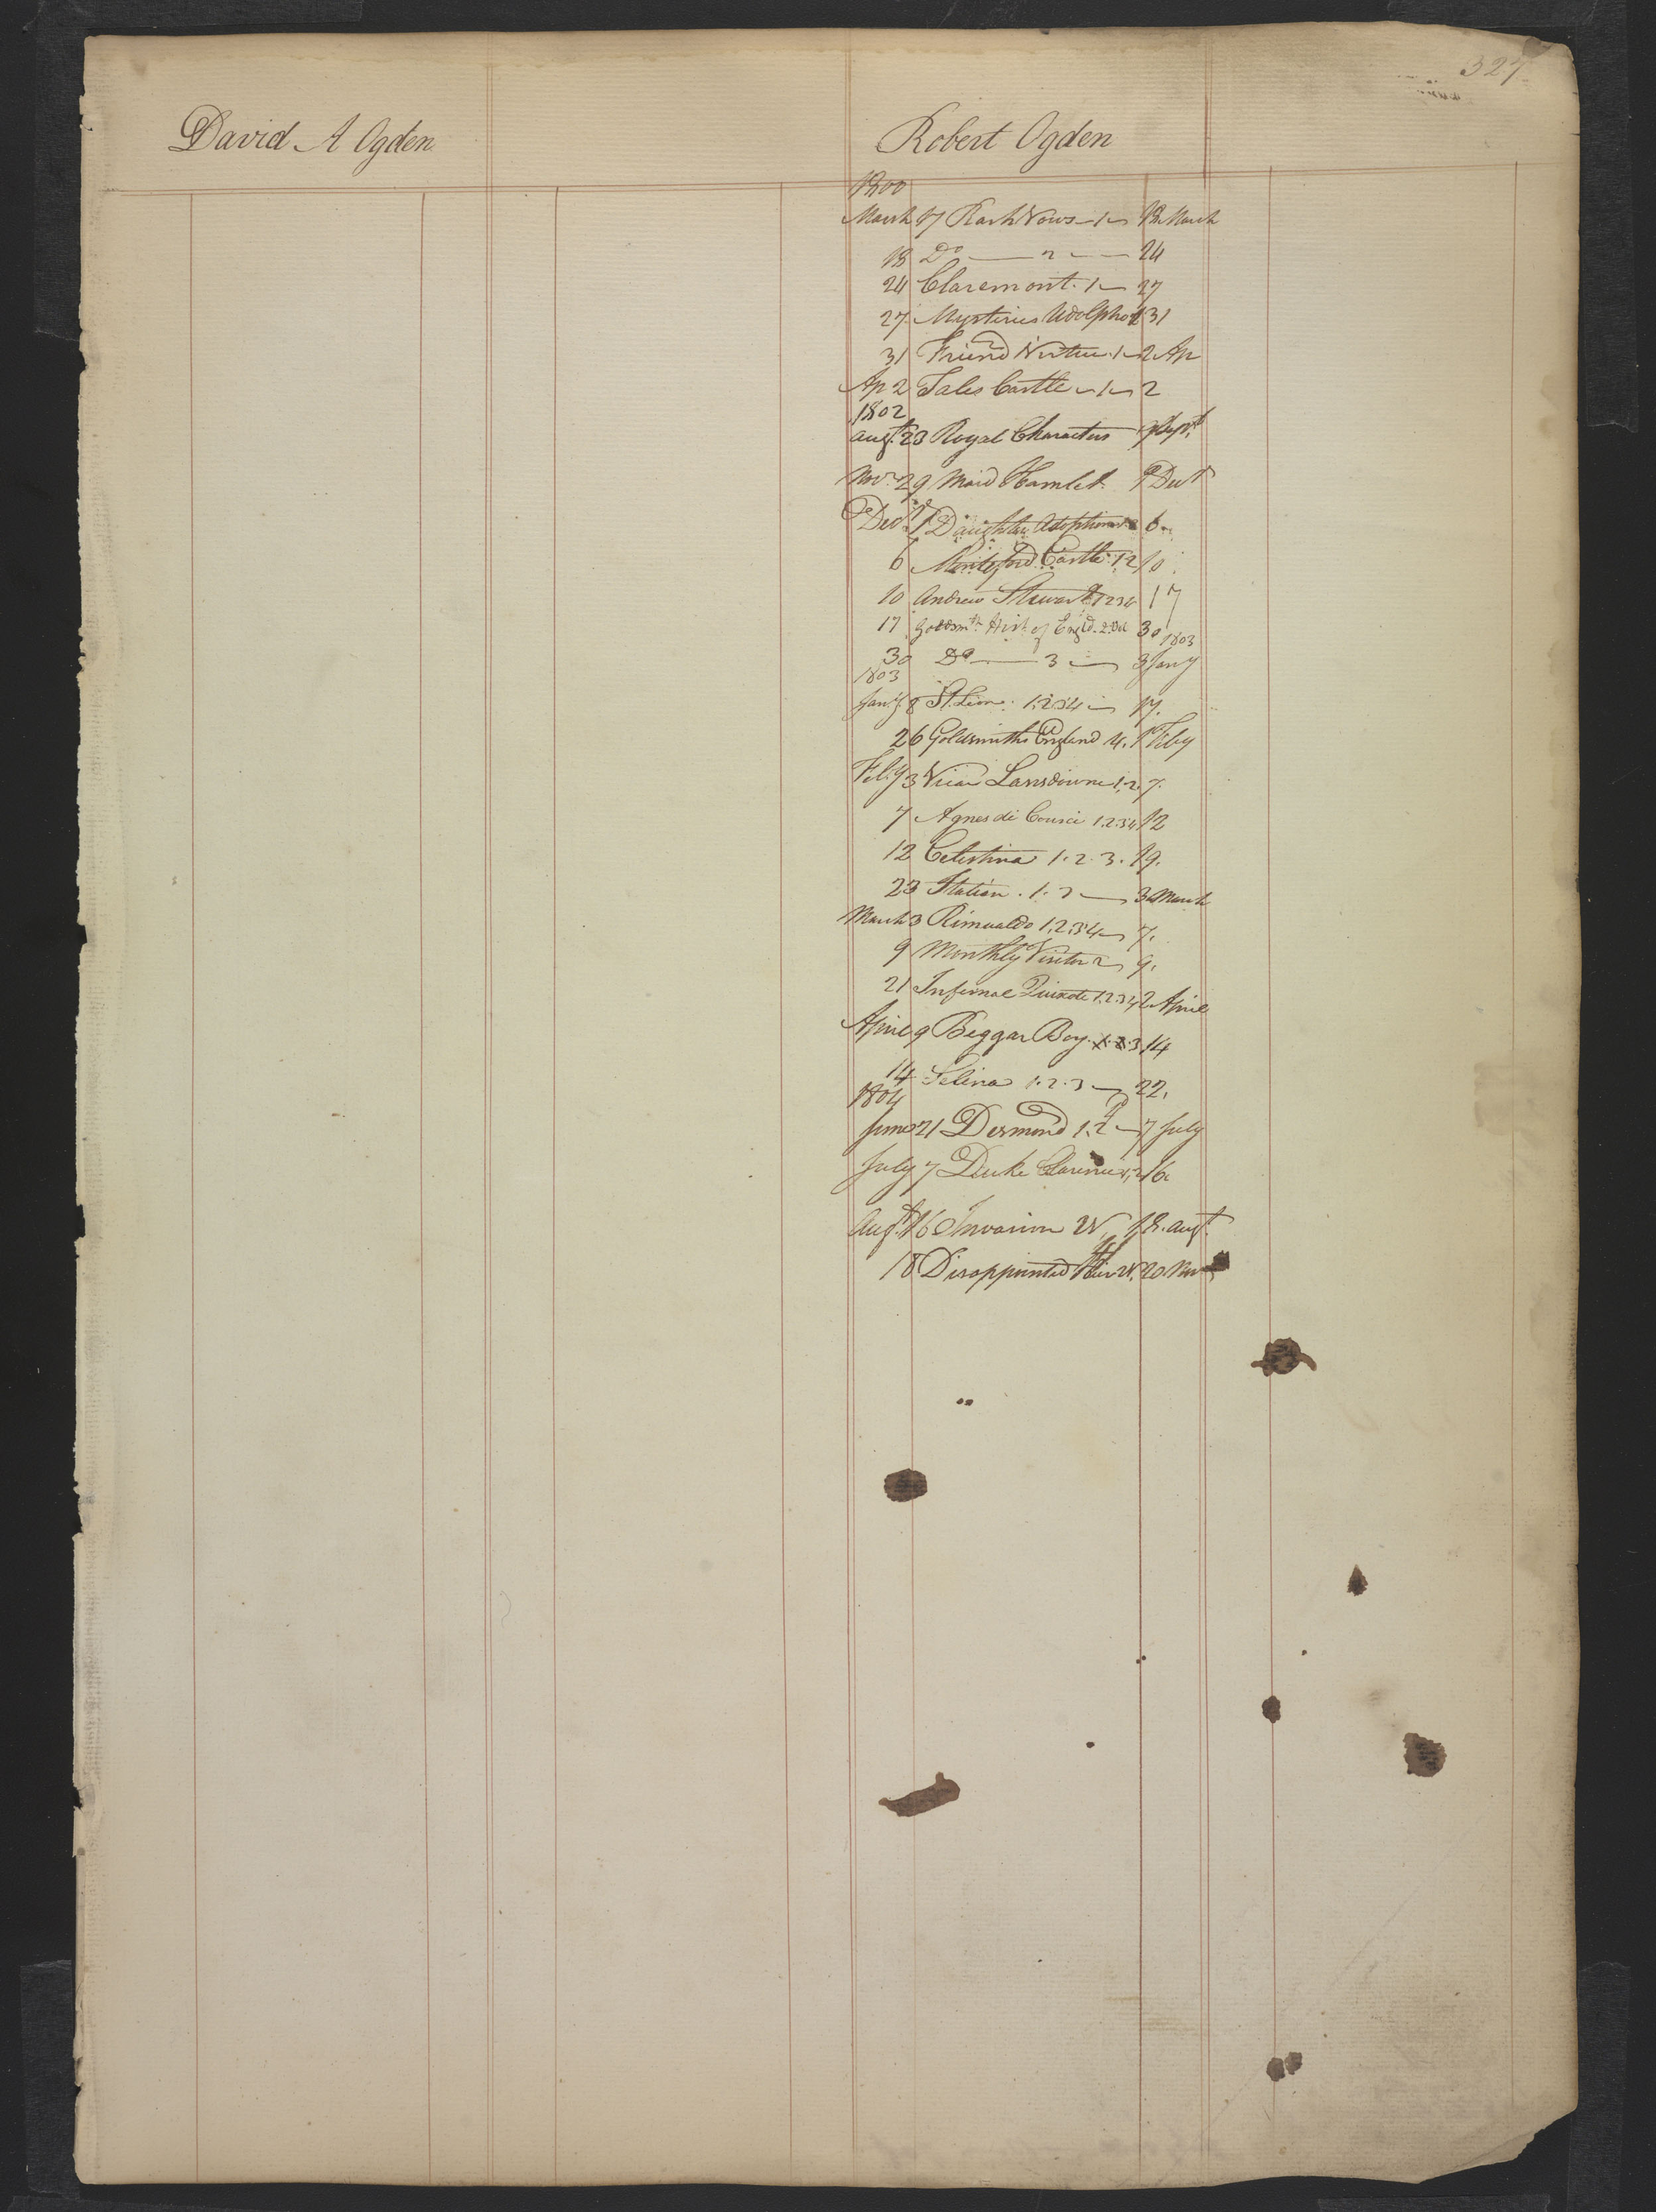 327
David A Ogden
Robert Ogden
1800
March 17 Rash Vows - 1 - 18 March
18 Do - 2 - 24
24 Claremont. 1 - 27
27 Mysteries Udolpho 1 31
31 Friend Virtue. 1 - 2 Ap
Ap 2 Tales Castle - 1 - 2
1802
Augt. 23 Royal Characters 7 Sept.
Nov. 29 Maid Hamlet. 1 Dect
Decr. 1 Daughter Adoption 6
6 Montford Castle. 1 2 10
10 Andrew Stewart 1 2 3 4 17
17 Goldsmth Hist of Engld. 2. Vol 30
30 Do - 3 - 3 Jany 1803
1803
Jany 8 St. Leon. 1.2.3.4 - 17.
26 Goldsmiths England 4. 1 Feby
Feby 3 Vicar Lansdowne 1.2. 7.
7 Agnes di Courci 1.2.3.4 12
12 Celestina 1. 2. 3. 19.
23 Italian. 1. 2 - 3 March
March 3 Rimualdo 1.2.3.4 - 7.
9 Monthly Visitor 2 - 9.
21 Infernal Quixote 1.2.3.4 2 April
April 9 Beggar Boy. 1. 2. 3 14
14 Selina 1. 2. 3 - 22.
1804
June 21 Desmond 1.2 - 7 July
July 7 Duke Clarence 1,2 16
Augt. 16 Invasion 2v, 18. Augt.
18 Disappointed Heir 2v. 20